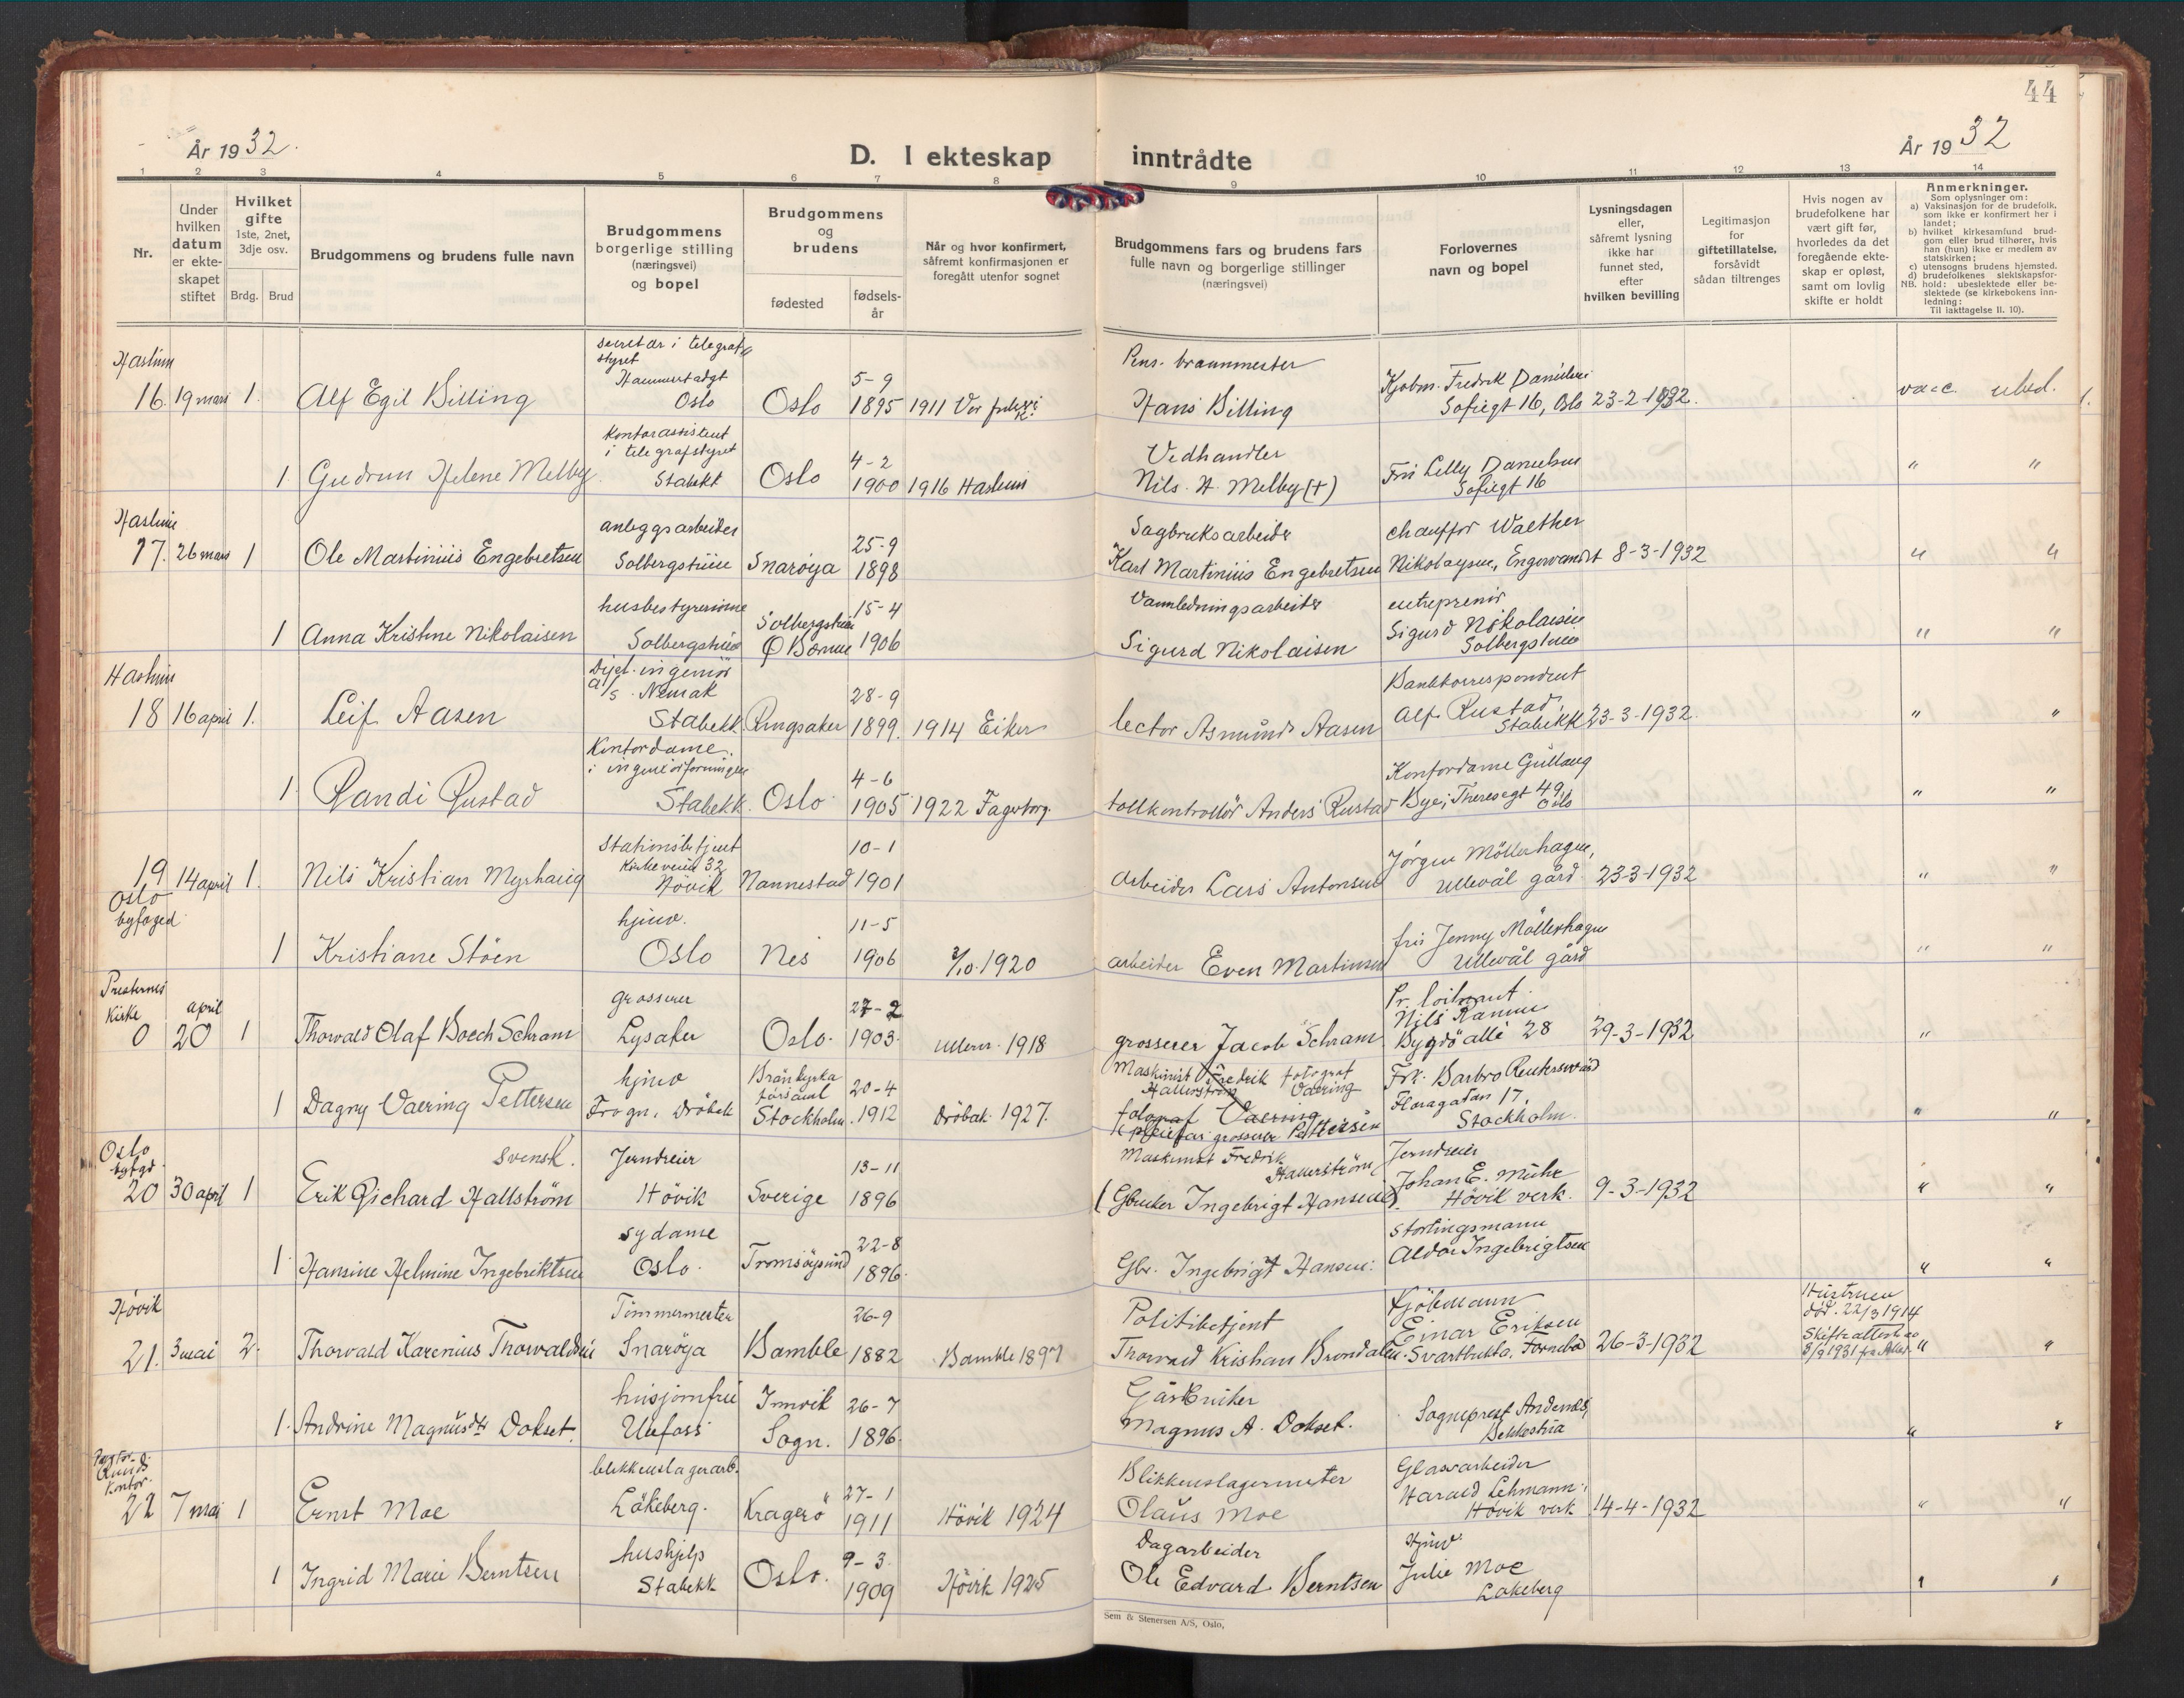 44
År 1932.
D. I ekteskap inntrådte
År 1932
1 2 3 4 5 6 7 8 9 10 11 12 13 14
Nr.
Under hvilken datum er ekteskapet stiftet
Hvilket gifte
1ste, 2net, 3dje osv.
Brdg. Brud
Brudgommens og brudens fulle navn
Brudgommens borgerlige stilling (næringsvei) og bopel
Brudgommens og brudens
fødested
fødselsår
Når og hvor konfirmert, såfremt konfirmasjonen er foregått utenfor sognet
Brudgommens fars og brudens fars fulle navn og borgerlige stillinger (næringsvei)
Forlovernes navn og bopel
Lysningsdagen eller, såfremt lysning ikke har funnet sted, efter hvilken bevilling
Legitimasjon for giftetillatelse, forsåvidt sådan tiltrenges
Hvis nogen av brudefolkene har vært gift før, hvorledes da det foregående ekteskap er opløst, samt om lovlig skifte er holdt
Anmerkninger.
Som oplysninger om:
a) Vaksinasjon for de brudefolk, som ikke er konfirmert her i landet;
b) hvilket kirkesamfund brudgom eller brud tilhører, hvis han (hun) ikke er medlem av statskirken;
c) utensogns brudens hjemsted.
d) brudefolkenes slektskapsforhold: ubeslektede eller beslektede (se kirkebokens innledning:
NB.
Til iakttagelse II. 10).
Haslum
16. 19 mars 1. Alf Egil Billing
secretær i telegrafstyret
Oslo
Oslo
5-9
1895
1911 Vor
Pens. brannmester
Hans Billing
Kjøbm. Fredrik Danielsen
Sofiegt 16, Oslo
23-2-1932.
vacc. ubesl.
1 Gudrun Helene Melby
kontorassistent
i telegrafstyret
Stabekk
Oslo
4-2
1900
1916 Haslum
Vedhandler
Nils. H. Melby (+)
Lilly Danielsen
Sofiegt 16
" "
Haslum
17. 26 mars 1 Ole Martinius Engebretsen
anleggsarbeider
Solbergstuen
Snarøya
25-9
1898
Sagbruksarbeider
Karl Martinius Engebretsen
chauffør Walther
Nikolaysen,
8-3-1932
" "
1 Anna Kristine Nikolaisen
husbestyrerinne
Solbergstuen
Solbergstuen
Ø Bærum
15-4
1906
Vannledningsarbeider
Sigurd Nikolaisen
entreprenør
Sigurd Nikolaisen
Solbergstuen
" "
Haslum
18 16 april 1. Leif Aasen
ingeniør
a/s. Nemak
Stabekk
Ringsaker
28-9
1899.
1914 Eiker
lector Asmund Aasen
Bankkorrespondent
Alf Rustad,
Stabekk
23-3-1932.
" "
1 Randi Rustad
Kontordame
i ingeniørforeningen
Stabekk.
Oslo
4-6
1905
1922 Fagerborg.
tollkontrollør Anders Rustad
Kontordame Gullaug
Bye, Theresegt 49, Oslo
" "
19 14 april 1. Nils Kristian Myrhaug
Oslo byfoged
Stationsbetjent
Kirkeveien 32
Høvik
Nannestad
10-1
1901
Arbeider Lars Antonsen
Jørgen Møllerhagen,
Ullevål gård
23-3-1932
" "
1 Kristiane Støen
hjmv.
Oslo
Nes
11-5
1906
3/10. 1920
arbeider Even Martinsen
fru Jenny Møllerhagen
Ullevål gård
" "
Presternes
Kirke
0 april 20 1 Thorvald Olaf Boech Schram
grosserer
Lysaker
Oslo.
27-2
1903.
Ullern. 1918
grosserer Jacob Schram
Pr. løitnant
Nils Ramm
Bygdø allé 28
29-3-1932
"
1 Dagny Vaering Pettersen
hjmv
Frogn, Drøbak
Brännkyrka
församl
Stockholm.
20-4
1912
Drøbak 1927.
Maskinist Fredrik Hallerström
fotograf Vaering
fotograf Vaering
(pleiefar grosserer Pettersen
Frk. Barbro Reuterswärd
Floragatan 17,
Stockholm.
" "
Oslo
byfgd
20 30 april 1 Erik Richard Hallström
svensk.
Jerndreier
Høvik
Sverige
13-11
1896
Maskinist Fredrik
Hallerström
(Gbruker Ingebrigt Hansen).
Jerndreier
Johan E. Muhr
Høvik verk.
9-3-1932
" "
1. Hansine Helmine Ingebriktsen
sydame
Oslo.
Tromsøysund
22-8
1896.
Gbr. Ingebrigt Hansen.
Stortingsmann
Aldor Ingebrigtsen
" "
Høvik
21. 3 mai 2. Thorvald Karenius Thorvaldsen
Tømmermester
Snarøya
Bamble
26-9
1882
Bamble 1897
Politibetjent
Thorvald Kristian Brondalen.
Kjøbmann
Einar Eriksen
Svartbukta, Fornebo
26-3-1932
Hustruen
død. 22/3 1914
Skifteattest av
8/9 1931 fra
" "
1. Andrine Magnusdtr Dokset.
husjomfru
Ulefoss
Innvik
Sogn.
26-7
1896.
Gårdbruker
Magnus A. Dokset.
Sogneprest Andenæs,
Bekkestua
" "
kontor.
22 7 mai 1 Ernst Moe
blikkenslagerarb.
Løkeberg.
Kragerø
27-1
1911
Høvik 1924
Blikkenslagermester
Olaus Moe
Glassarbeider
Harald Lehmann
Høvik verk
14-4-1932
" "
1 Ingrid Marie Berntsen
hushjelp
Stabekk
Oslo.
9-3
1909
Høvik 1925
Dagarbeider
Ole Edvard Berntsen
Hjmv.
Julie Moe
Løkeberg
" "
Sem & Stenersen A/S, Oslo,